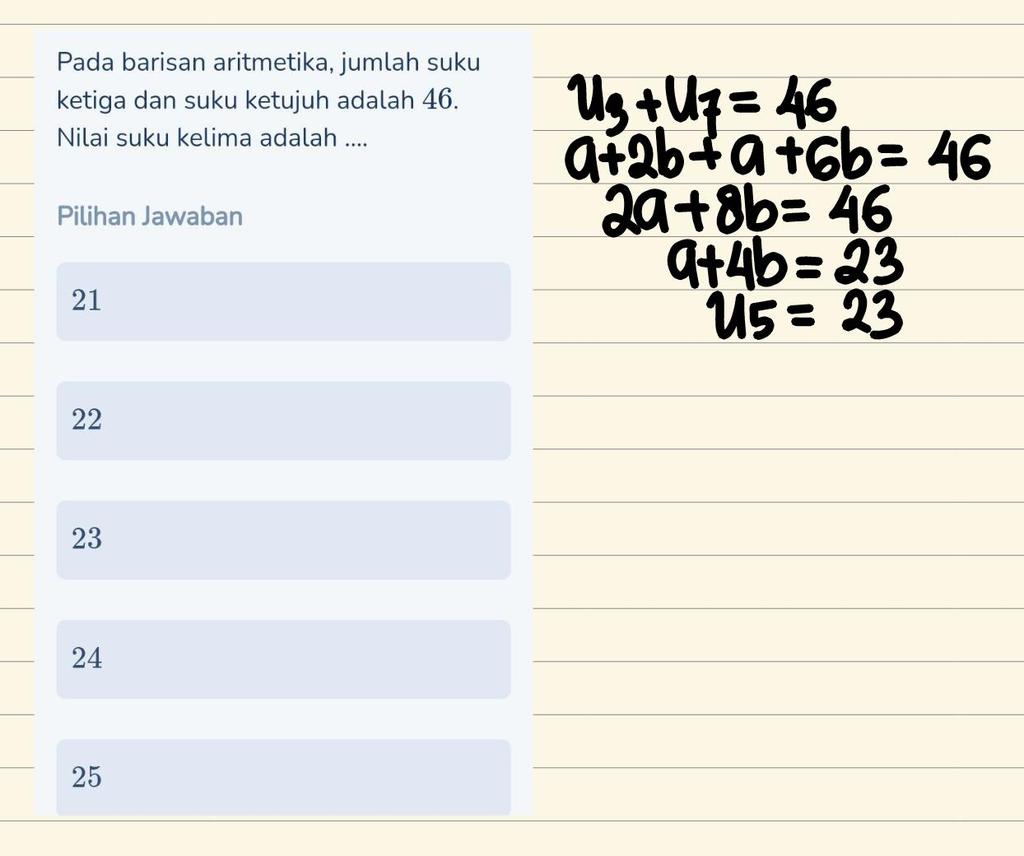 Pada barisan aritmetika, jumlah suku
ketiga dan suku ketujuh adalah 46.
Nilai suku kelima adalah ....
Pilihan Jawaban
21
22
23
24
25
U3 + U7 = 46
a+2b+a+6b = 46
2a+8b = 46
a+4b = 23
U5 = 23